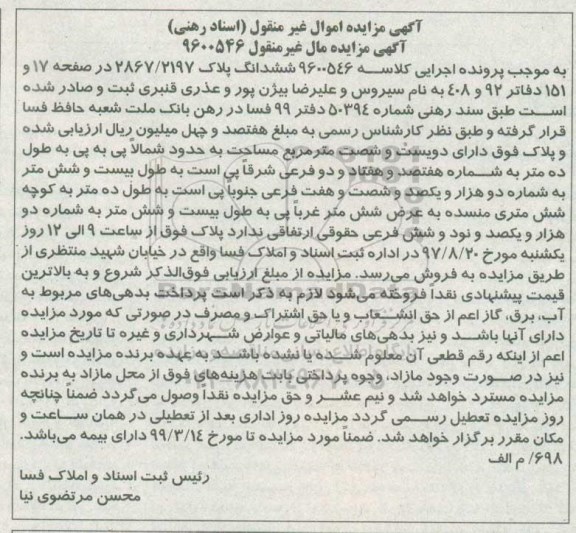 آگهی مزایده اموال غیر منقول (اسناد رهنی)
آگهی مزایده مال غیرمنقول ۹۶۰۰۵۴۶
به موجب پرونده اجرایی کلاسه ۹۶۰۰۵٤٦ ششدانگ پلاک ۲۸٦۷/۲۱۹۷ در صفحه ۱۷ و
۱۵۱ دفاتر ۹۲ و ٤۰۸ به نام سیروس و علیرضا بیژن پور و عذری قنبری ثبت و صادر شده
است طبق سند رهنی شماره ۵۰۳۹٤ دفتر ۹۹ فسا در رهن بانک ملت شعبه حافظ فسا
قرار گرفته و طبق نظر کارشناس رسمی به مبلغ هفتصد و چهل میلیون ریال ارزیابی شده
و پلاک فوق دارای دویست و شصت مترمربع مساحت به حدود شمالاً پی به پی به طول
ده متر به شماره هفتصد و هفتاد و دو فرعی شرقاً پی است به طول بیست و شش متر
به شماره دو هزار و یکصد و شصت و هفت فرعی جنوباً پی است به طول ده متر به کوچه
شش متری منسده به عرض شش متر غرباً پی به طول بیست و شش متر به شماره دو
هزار و یکصد و نود و شش فرعی حقوقی ارتفاقی ندارد پلاک فوق از ساعت ۹ الی ۱۲ روز
یکشنبه مورخ ۹۷/۸/۲۰ در اداره ثبت اسناد و املاک فسا واقع در خیابان شهید منتظری از
طریق مزایده به فروش می‌رسد. مزایده از مبلغ ارزیابی فوق‌الذکر شروع و به بالاترین
قیمت پیشنهادی نقداً فروخته می‌شود لازم به ذکر است پرداخت بدهی‌های مربوط به
آب، برق، گاز اعم از حق انشعاب و یا حق اشتراک و مصرف در صورتی که مورد مزایده
دارای آنها باشد و نیز بدهی‌های مالیاتی و عوارض شهرداری و غیره تا تاریخ مزایده
اعم از اینکه رقم قطعی آن معلوم شده یا نشده باشد به عهده برنده مزایده است و
نیز در صورت وجود مازاد، وجوه پرداختی بابت هزینه‌های فوق از محل مازاد به برنده
مزایده مسترد خواهد شد و نیم عشر و حق مزایده نقداً وصول می‌گردد ضمناً چنانچه
روز مزایده تعطیل رسمی گردد مزایده روز اداری بعد از تعطیلی در همان ساعت و
مکان مقرر برگزار خواهد شد. ضمناً مورد مزایده تا مورخ ۹۹/۳/۱٤ دارای بیمه می‌باشد.
۶۹۸/ م الف
رئیس ثبت اسناد و املاک فسا
محسن مرتضوی نیا